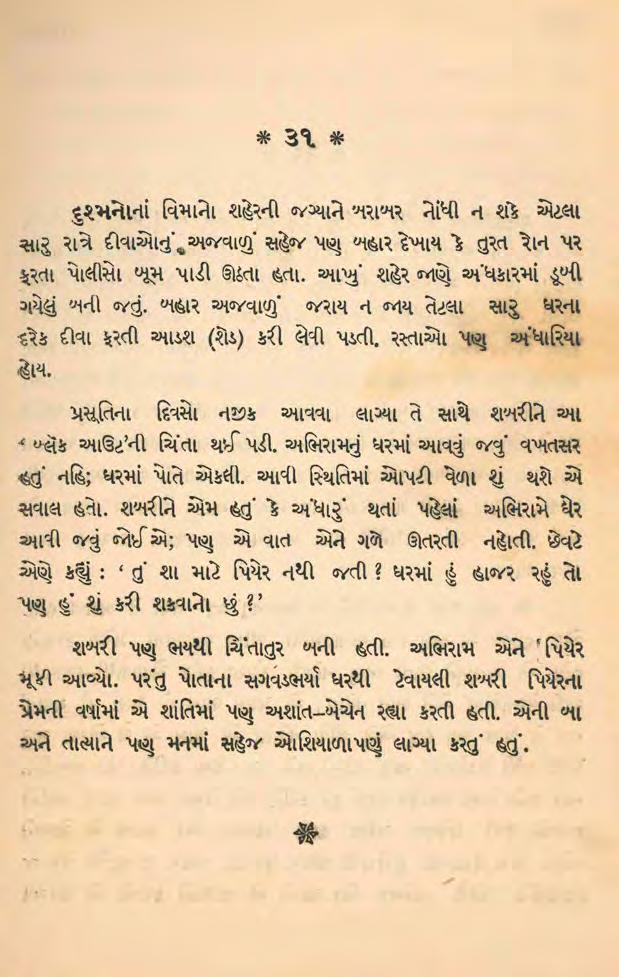 * ૩૧ *
દુશ્મનોનાં વિમાનો શહેરની જગ્યાને બરાબર નોંધી ન શકે એટલા
સારુ રાત્રે દીવાઓનું અજવાળું સહેજ પણ બહાર દેખાય કે તુરત રોન પર
ફરતા પોલીસો બૂમ પાડી ઊઠતા હતા. આખું શહેર જાણે અંધકારમાં ડૂબી
ગયેલું બની જતું. બહાર અજવાળું જરાય ન જાય તેટલા સારુ ઘરના
દરેક દીવા ફરતી આડશ (શેડ) કરી લેવી પડતી. રસ્તાઓ પણ અંધારિયા
હોય.
પ્રસૂતિના દિવસો નજીક આવવા લાગ્યા તે સાથે શબરીને આ
‘ બ્લૅક આઉટ’ની ચિંતા થઈ પડી. અભિરામનું ઘરમાં આવવું જવું વખતસર
હતું નહિ; ઘરમાં પોતે એકલી. આવી સ્થિતિમાં ઓપટી વેળા શું થશે એ
સવાલ હતો. શબરીને એમ હતું કે અંધારું થતાં પહેલાં અભિરામે ઘેર
આવી જવું જોઈએ; પણ એ વાત એને ગળે ઊતરતી નહોતી. છેવટે
એણે કહ્યું : ‘ તું શા માટે પિયેર નથી જતી ? ઘરમાં હું હાજર રહું તો
પણ હું શું કરી શકવાનો છું ?’
શબરી પણ ભયથી ચિંતાતુર બની હતી. અભિરામ એને પિયેર
મૂકી આવ્યો. પરંતુ પોતાના સગવડભર્યા ઘરથી ટેવાયલી શબરી પિયેરના
પ્રેમની વર્ષામાં એ શાંતિમાં પણ અશાંત–બેચેન રહ્યા કરતી હતી. એની બા
અને તાત્યાને પણ મનમાં સહેજ ઓશિયાળાપણું લાગ્યા કરતું હતું.